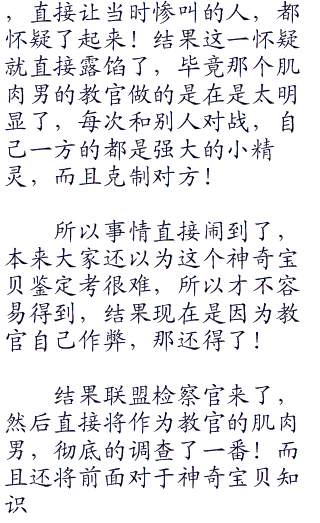 ，直接让当时惨叫的人，都
怀疑了起来！结果这一怀疑
就直接露馅了，毕竟那个肌
肉男的教官做的是在是太明
显了，每次和别人对战，自
己一方的都是强大的小精
灵，而且克制对方！
所以事情直接闹到了，
本来大家还以为这个神奇宝
贝鉴定考很难，所以才不容
易得到，结果现在是因为教
官自己作弊，那还得了！
结果联盟检察官来了，
然后直接将作为教官的肌肉
男，彻底的调查了一番！而
且还将前面对于神奇宝贝知
识